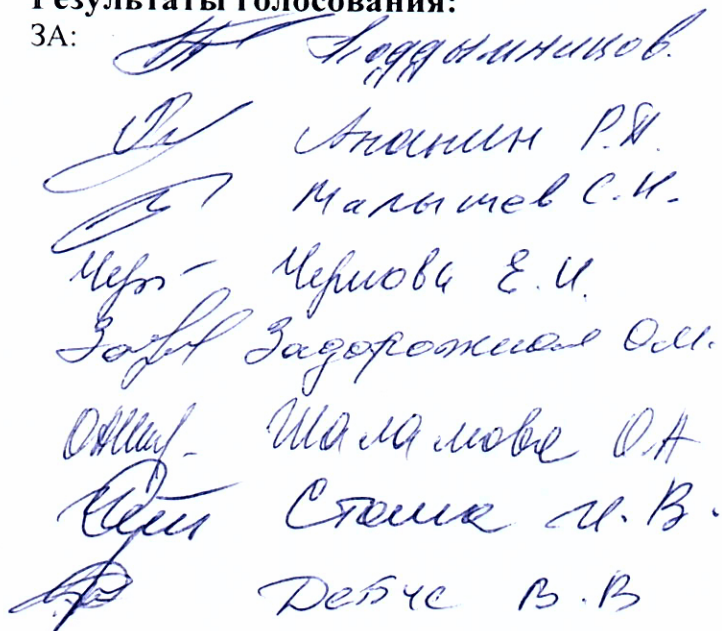 Результаты голосования:
ЗА:
Поддымников.
Ананин Р.П.
Малышев С.Н.
Чернова Е.И.
Задорожная О.М.
Шаламова О А
Сташк И. В.
Дейчс В.В